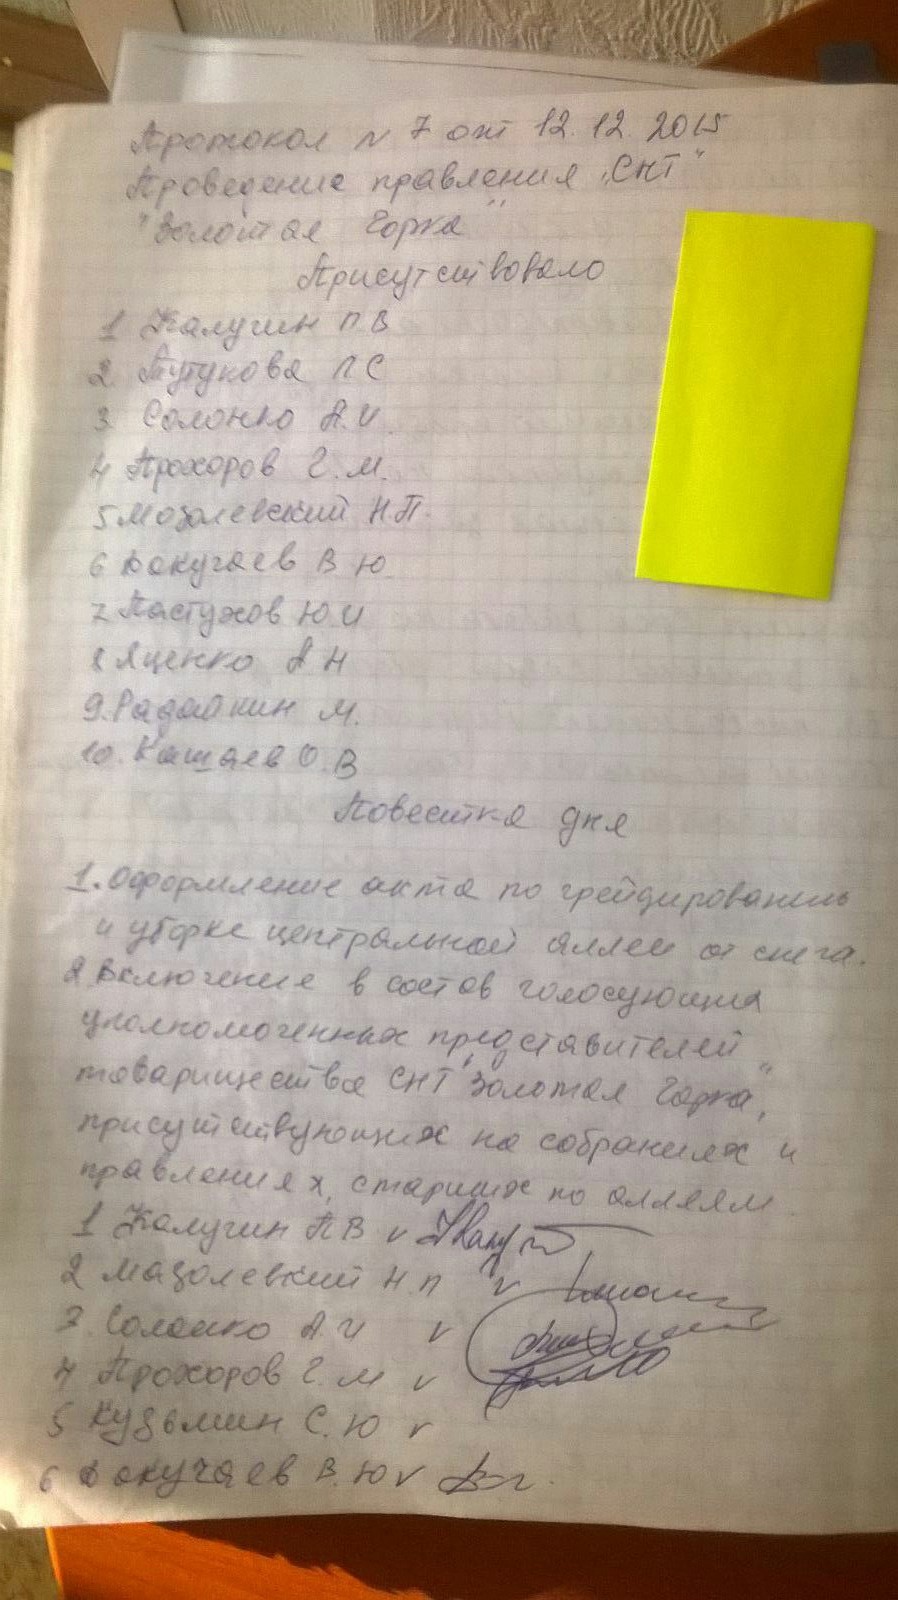 Протокол N 7 от 12.12.2015
Проведение правления "СНТ"
"Золотая Горка"
Присутствовало
1 Калугин П В
2. Тутукова Л С
3 Солонко А.И.
4 Прохоров Г.М.
5 Мозолевский Н.П.
6 Докучаев В Ю
7 Пастухов Ю И
8 Яценко А Н
9. Радайкин М.
10. Кашаев О.В
Повестка дня
1. Оформление акта по грейдированию
и уборке центральной аллеи от снега.
2 Включение в состав голосующих
уполномоченных представителей
товарищества СНТ "Золотая Горка",
присутствующих на собраниях и
правлениях, старших по аллеям
1 Калугин П В v
2 Мазолевкий Н П v
3. Солонко А.И v
4 Прохоров Г. М v
5 Кузьмин С. Ю v
6 Докучаев В. Ю v